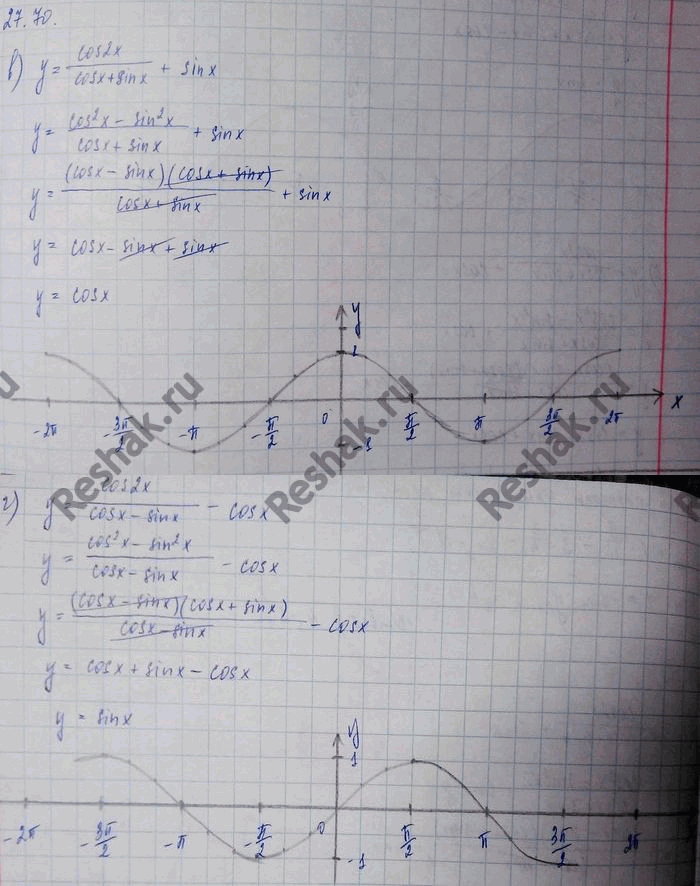 27.70.
в) y = cos2x / (cosx + sinx) + sinx
y = (cos²x − sin²x) / (cosx + sinx) + sinx
y = (cosx − sinx)(cosx + sinx) / (cosx + sinx) + sinx
y = cosx − sinx + sinx
y = cosx
y
1
x
−2π −3π/2 −π −π/2 0 π/2 π 3π/2 2π
−1
Reshak.ru Reshak.ru Reshak.ru
г) y = cos2x / (cosx − sinx) − cosx
y = (cos²x − sin²x) / (cosx − sinx) − cosx
y = (cosx − sinx)(cosx + sinx) / (cosx − sinx) − cosx
y = cosx + sinx − cosx
y = sinx
y
1
−2π −3π/2 −π −π/2 0 π/2 π 3π/2 2π
−1